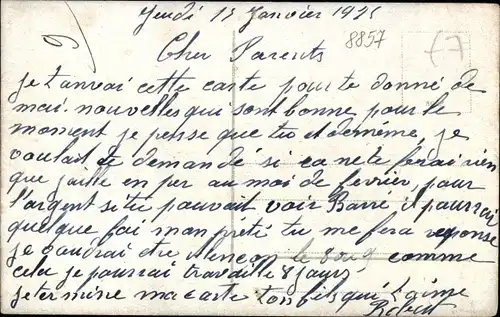 Jeudi 15 Janvier 1925
8857
£7
Cher Parents
Je t'anvai cette carte pour te donné de
mai nouvelles qui sont bonne pour le
moment je pense que tu et de même, je
voulait te demandé si ca ne te ferai rien
que jaille en per au moi de fevrier, pour
l'argent si tu pouvait voir Barré il pourrai
quelque foi man prêté tu me fera reponse
je voudrai etre Alencon le 8 comme
cela je pourrai travaillé 8 jours,
je termine ma carte ton fils qui t'aime
Robert